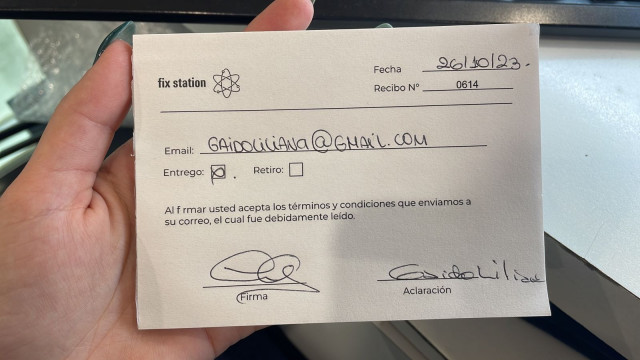 fix station
Fecha 26/10/23.
Recibo N° 0614
Email: GAIDOLILIANA@GMAIL.COM
Entrego: Retiro:
Al f rmar usted acepta los términos y condiciones que enviamos a
su correo, el cual fue debidamente leído.
Gaido Liliana
Firma Aclaración